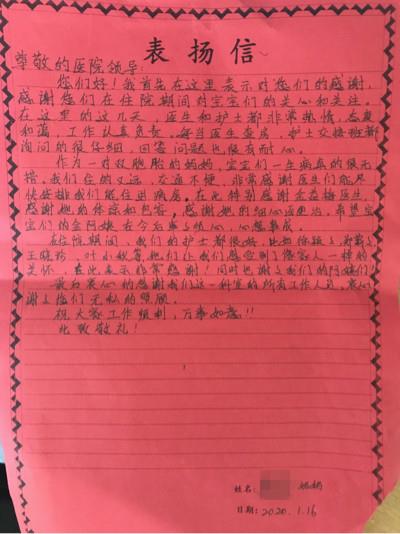 表扬信
尊敬的医院领导:
您们好!我首先在这里表示对您们的感谢,
感谢您们在住院期间对宝宝们的关心和关注。
在这里的这几天,医生和护士都非常热情,态度
和蔼,工作认真负责,每当医生查房,护士交接班都
询问的很仔细,回答问题也很有耐心。
作为一对双胞胎的妈妈,宝宝们一生病真的很无
措。我们住的又远,交通不便,非常感谢医生们能尽
快安排我们能住进病房。在此特别感谢孟益梅医生,
感谢她的体谅和包容,感谢她的细心
们的金阿姨在今后事事顺心,心想事成。
在住院期间,我们的护士都很好,比如
王晓珍、叶小秋等,他们让我们感受到了像家人一样的
关怀,在此表示非常感谢!同时也谢谢我们的阿姨们!
最后衷心的感谢我们这一科室的所有工作人员,衷心
谢谢他们无私的照顾。
祝大家工作顺利,万事如意!!
此致敬礼!
姓名: 妈妈
日期: 2020.1.16